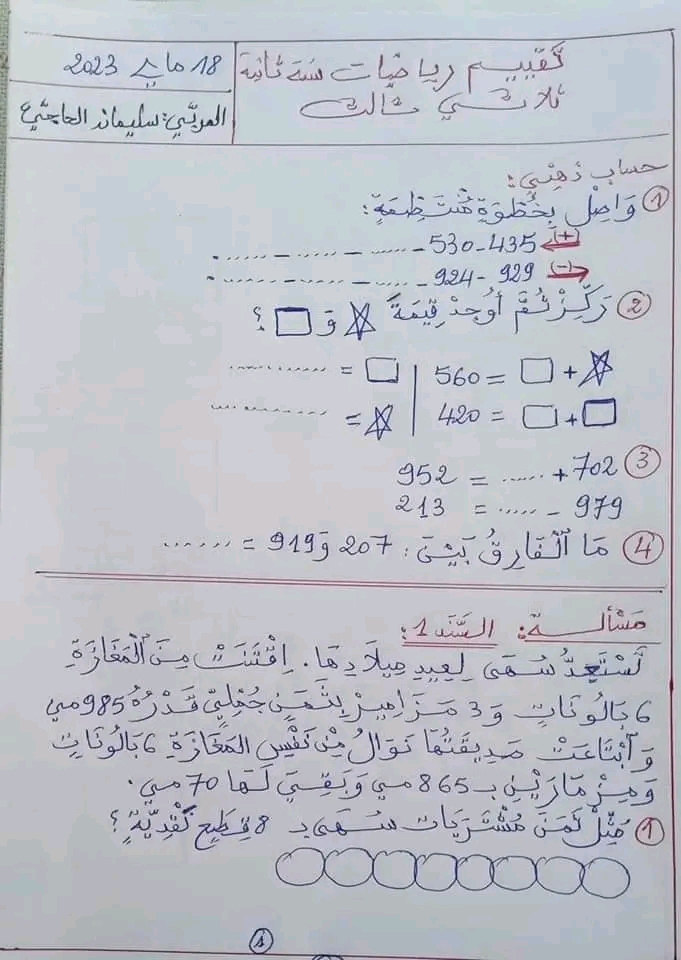 تقييم رياضيات سنة ثانية
ثلاثي ثالث
18 ماي 2023
المربّي: سليمان الحاجّي
حساب ذهني:
1 وَاصِلْ بِخُطْوَةٍ مُنْتَظِمَةٍ:
(+) 435-530-......-......-......
(-) 929-924-......-......-......
2 رَكِّزْ ثُمَّ أُوجِدْ قِيمَةَ ☆ وَ □ ؟
☆ + □ = 560 | □ = ............
□ + □ = 420 | ☆ = ............
3 702 + ...... = 952
979 - ...... = 213
4 مَا ٱلْفَارِقُ بَيْنَ: 207 وَ 919 = .......
مسألة: السَّنَد 1:
تَسْتَعِدُّ سُهَى لِعِيدِ مِيلَادِهَا. اِقْتَنَتْ مِنَ ٱلْمَغَازَةِ
6 بَالُونَاتٍ وَ 3 مَزَامِيرَ بِثَمَنٍ جُمْلِيٍّ قَدْرُهُ 985 مي
وَٱبْتَاعَتْ صَدِيقَتُهَا نَوَالُ مِنْ نَفْسِ المَغَازَةِ 6 بَالُونَاتٍ
وَمِزْمَارَيْنِ بـ 865 مي وَبَقِيَ لَهَا 70 مي.
1 مَثِّلْ ثَمَنَ مُشْتَرَيَاتِ سُهَى بـ 8 قِطَعٍ نَقْدِيَّةٍ ؟
1